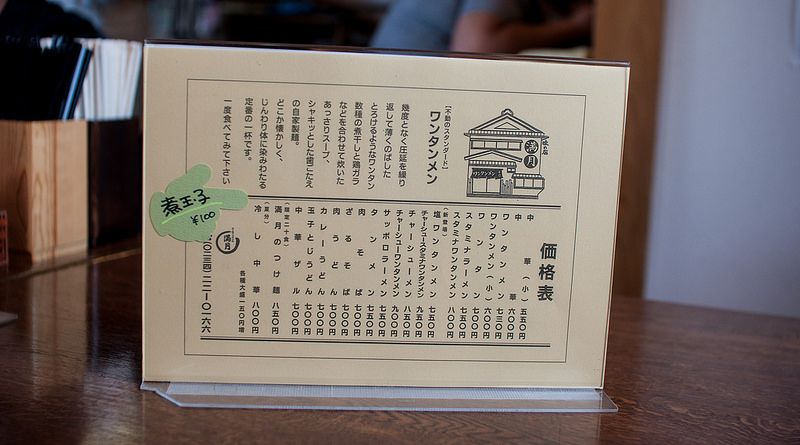 味の店
満月
ワンタンメン
[不動のスタンダード]
ワンタンメン
幾度となく圧延を繰り
返して薄くのばした
とろけるようなワンタン
数種の煮干しと鶏ガラ
などを合わせて炊いた
あっさりスープ、
シャキッとした歯ごたえ
の自家製麺。
どこか懐かしく、
じんわり体に染みわたる
定番の一杯です。
一度食べてみて下さい
煮玉子
¥100
価格表
中華(小) 五五〇円
中華 六〇〇円
ワンタンメン 七三〇円
ワンタンメン(小) 六〇〇円
ワンタン
スタミナラーメン 七五〇円
スタミナワンタンメン 八〇〇円
(新登場)
塩ワンタンメン 七五〇円
チャーシュースタミナワンタンメン 九五〇円
チャーシューメン 八五〇円
チャーシューワンタンメン 九〇〇円
サッポロラーメン 七五〇円
タンメン 七五〇円
肉そば 七〇〇円
ざるそば 七〇〇円
肉うどん 七〇〇円
カレーうどん 七〇〇円
玉子とじうどん 七〇〇円
中華ザル 七〇〇円
(限定二十食)
満月のつけ麺 八五〇円
(夏分)
冷し中華 八〇〇円
各種大盛一五〇円増
満月
〇二三四(二二)〇一六六